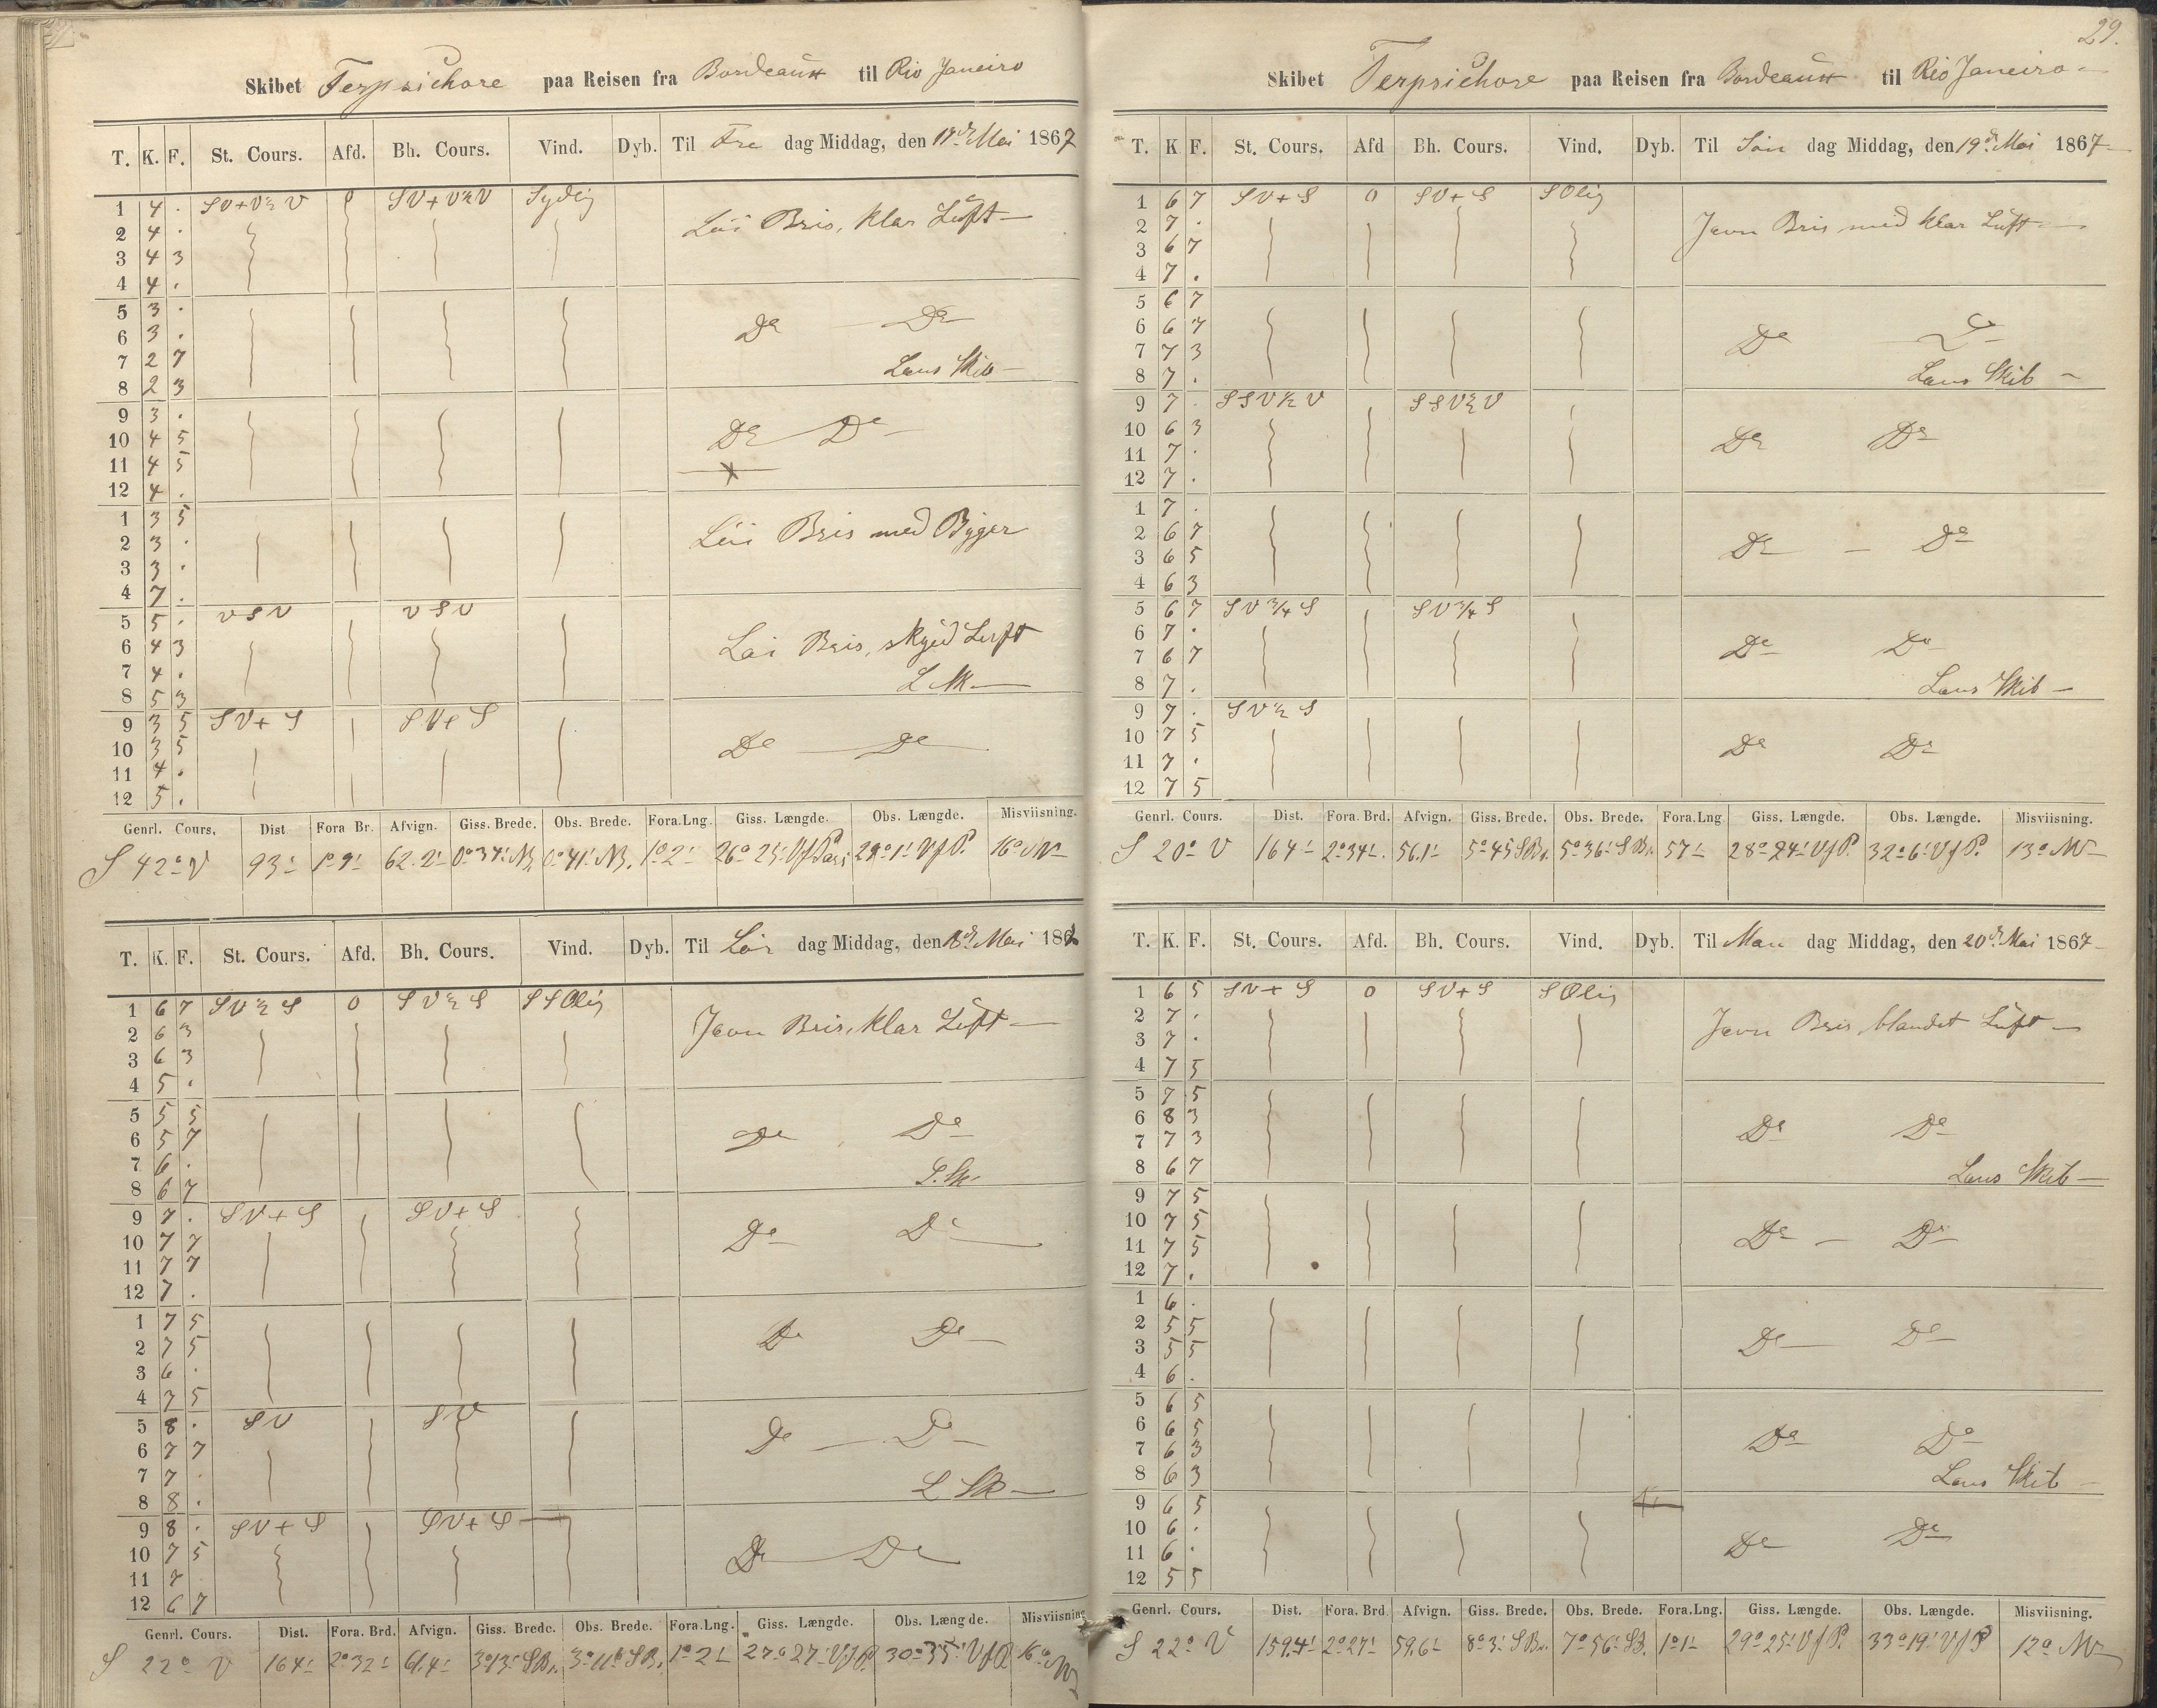 Skibet Terpsichore paa Reisen fra Bordeaux til Rio Janeiro
T. K. F. St. Cours. Afd. Bh. Cours. Vind. Dyb. Til Fre dag Middag, den 17de Mai 1867
1 4 . SV+V½V 0 SV+V½V Sydlig Løi Bris, klar Luft
2 4 .
3 4 3
4 4 .
5 3 .
6 3 . Do Do
7 2 7
8 2 3 Læns Skib
9 3 .
10 4 5 Do Do
11 4 5
12 4 .
1 3 5
2 3 . Løi Bris med Byger
3 3 .
4 7 .
5 5 . VSV VSV
6 4 3 Løi Bris, skyed Luft
7 4 .
8 5 3 L Sk
9 3 5 SV+S SV+S
10 3 5 Do Do
11 4 .
12 5 .
Genrl. Cours. Dist Fora Br. Afvign. Giss. Brede. Obs. Brede. Fora.Lng. Giss. Længde. Obs. Længde. Misviisning.
S 42° V 93' 1°9' 62.2' 0°34' NB. 0°41' NB. 1°2' 26°25' VfParis 29°1' VfP. 16° NV
T. K. F. St. Cours. Afd. Bh. Cours. Vind. Dyb. Til Lør dag Middag, den 18de Mai 1867
1 6 7 SV½S 0 SV½S SSOlig Jevn Bris, klar Luft
2 6 3
3 6 3
4 5 .
5 5 5
6 5 7 Do Do
7 6 .
8 6 7 L. Sk.
9 7 . SV+S SV+S
10 7 7 Do Do
11 7 7
12 7 .
1 7 5
2 7 5 Do Do
3 6 .
4 7 5
5 8 . SV SV
6 7 7 Do Do
7 7 .
8 8 . L Sk
9 8 . SV+S SV+S
10 7 5 Do Do
11 7
12 6 7
Genrl. Cours. Dist. Fora. Brd. Afvign. Giss. Brede. Obs. Brede. Fora.Lng. Giss. Længde. Obs. Længde. Misviisning
S 22° V 164' 2°32' 61.4' 3°13' SBr. 3°11' SB. 1°2' 27°27' VfP. 30°35' VfP 16° NV
29.
Skibet Terpsichore paa Reisen fra Bordeaux til Rio Janeiro
T. K F. St. Cours. Afd Bh. Cours. Vind. Dyb. Til Søn dag Middag, den 19de Mai 1867
1 6 7 SV+S 0 SV+S SOlig
2 7 . Jevn Bris med klar Luft
3 6 7
4 7 .
5 6 7
6 6 7 Do Do
7 7 3
8 7 . Læns Skib
9 7 . SSV½V SSV½V
10 6 3 Do Do
11 7 .
12 7 .
1 7 .
2 6 7 Do Do
3 6 5
4 6 3
5 6 7 SV¾S SV¾S
6 7 . Do Do
7 6 7
8 7 . Læns Skib
9 7 . SV½S
10 7 5 Do Do
11 7 .
12 7 5
Genrl. Cours. Dist. Fora. Brd. Afvign. Giss. Brede. Obs. Brede. Fora.Lng Giss. Længde. Obs. Længde. Misviisning.
S 20° V 164' 2°34' 56.1' 5°45' SBr. 5°36' SBr. 57' 28°24' VfP. 32°6' VfP. 13° NV
T. K. F. St. Cours. Afd. Bh. Cours. Vind. Dyb. Til Man dag Middag, den 20de Mai 1867
1 6 5 SV+S 0 SV+S SOlig
2 7 . Jevn Bris, blandet Luft
3 7 .
4 7 5
5 7 5
6 8 3 Do Do
7 7 3
8 6 7 Læns Skib
9 7 5
10 7 5 Do Do
11 7 5
12 7 .
1 6 .
2 5 5 Do Do
3 5 5
4 6 .
5 6 5
6 6 5 Do Do
7 6 3
8 6 3 Læns Skib
9 6 5
10 6 . Do Do
11 6 .
12 5 5
Genrl. Cours. Dist. Fora. Brd. Afvign. Giss. Brede. Obs. Brede. Fora.Lng. Giss. Længde. Obs. Længde. Misviisning.
S 22° V 159.4' 2°27' 59.6' 8°3' SBr. 7°56' SB. 1°1' 29°25' VfP. 33°19' VfP 12° NV